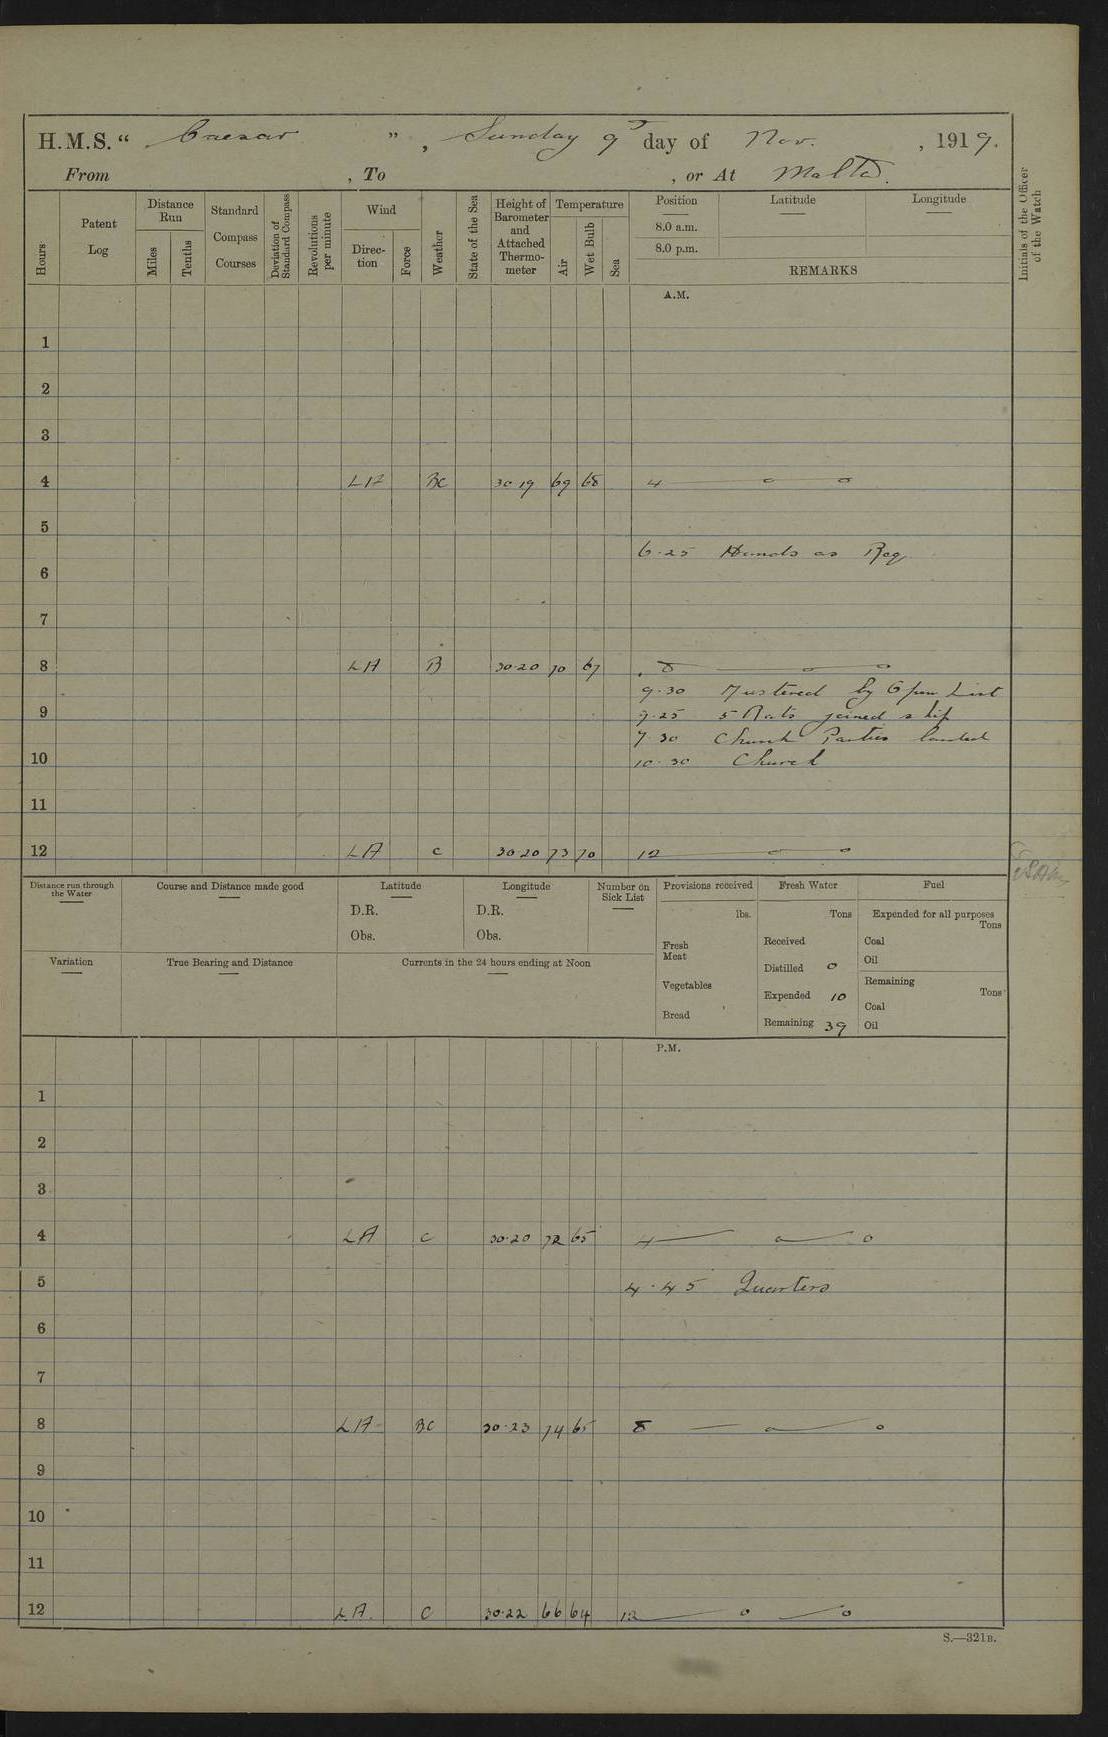 H.M.S. " Caesar ", Sunday 9th day of Nov. , 1919.
From , To , or At Malta.
Hours
Patent Log
Distance Run
Miles
Tenths
Standard Compass Courses
Deviation of Standard Compass
Revolutions per minute
Wind
Direc-tion
Force
Weather
State of the Sea
Height of Barometer and Attached Thermo-meter
Temperature
Air
Wet Bulb
Sea
Position Latitude Longitude
8.0 a.m.
8.0 p.m.
REMARKS
Initials of the Officer of the Watch
A.M.
1
2
3
4 LA BC 30 19 69 68 4 o o
5
6.25 Hands as Req
6
7
8 LA B 30.20 70 67 8 o o
9.30 Mustered by Open List
9 9.25 5 Rats joined ship
9.30 Church Parties landed
10 10.30 Church
11
12 LA C 30 20 73 70 12 o o
Distance run through the Water
Course and Distance made good
Latitude
D.R.
Obs.
Longitude
D.R.
Obs.
Number on Sick List
Provisions received
lbs.
Fresh Meat
Vegetables
Bread
Fresh Water
Tons
Received
Distilled 0
Expended 10
Remaining 39
Fuel
Expended for all purposes
Tons
Coal
Oil
Remaining
Tons
Coal
Oil
Variation
True Bearing and Distance
Currents in the 24 hours ending at Noon
P.M.
1
2
3
4 LA C 30.20 72 65 4 o o
5 4.45 Quarters
6
7
8 LA BC 30.23 74 65 8 o o
9
10
11
12 LA. C 30.22 66 64 12 o o
S.—321B.